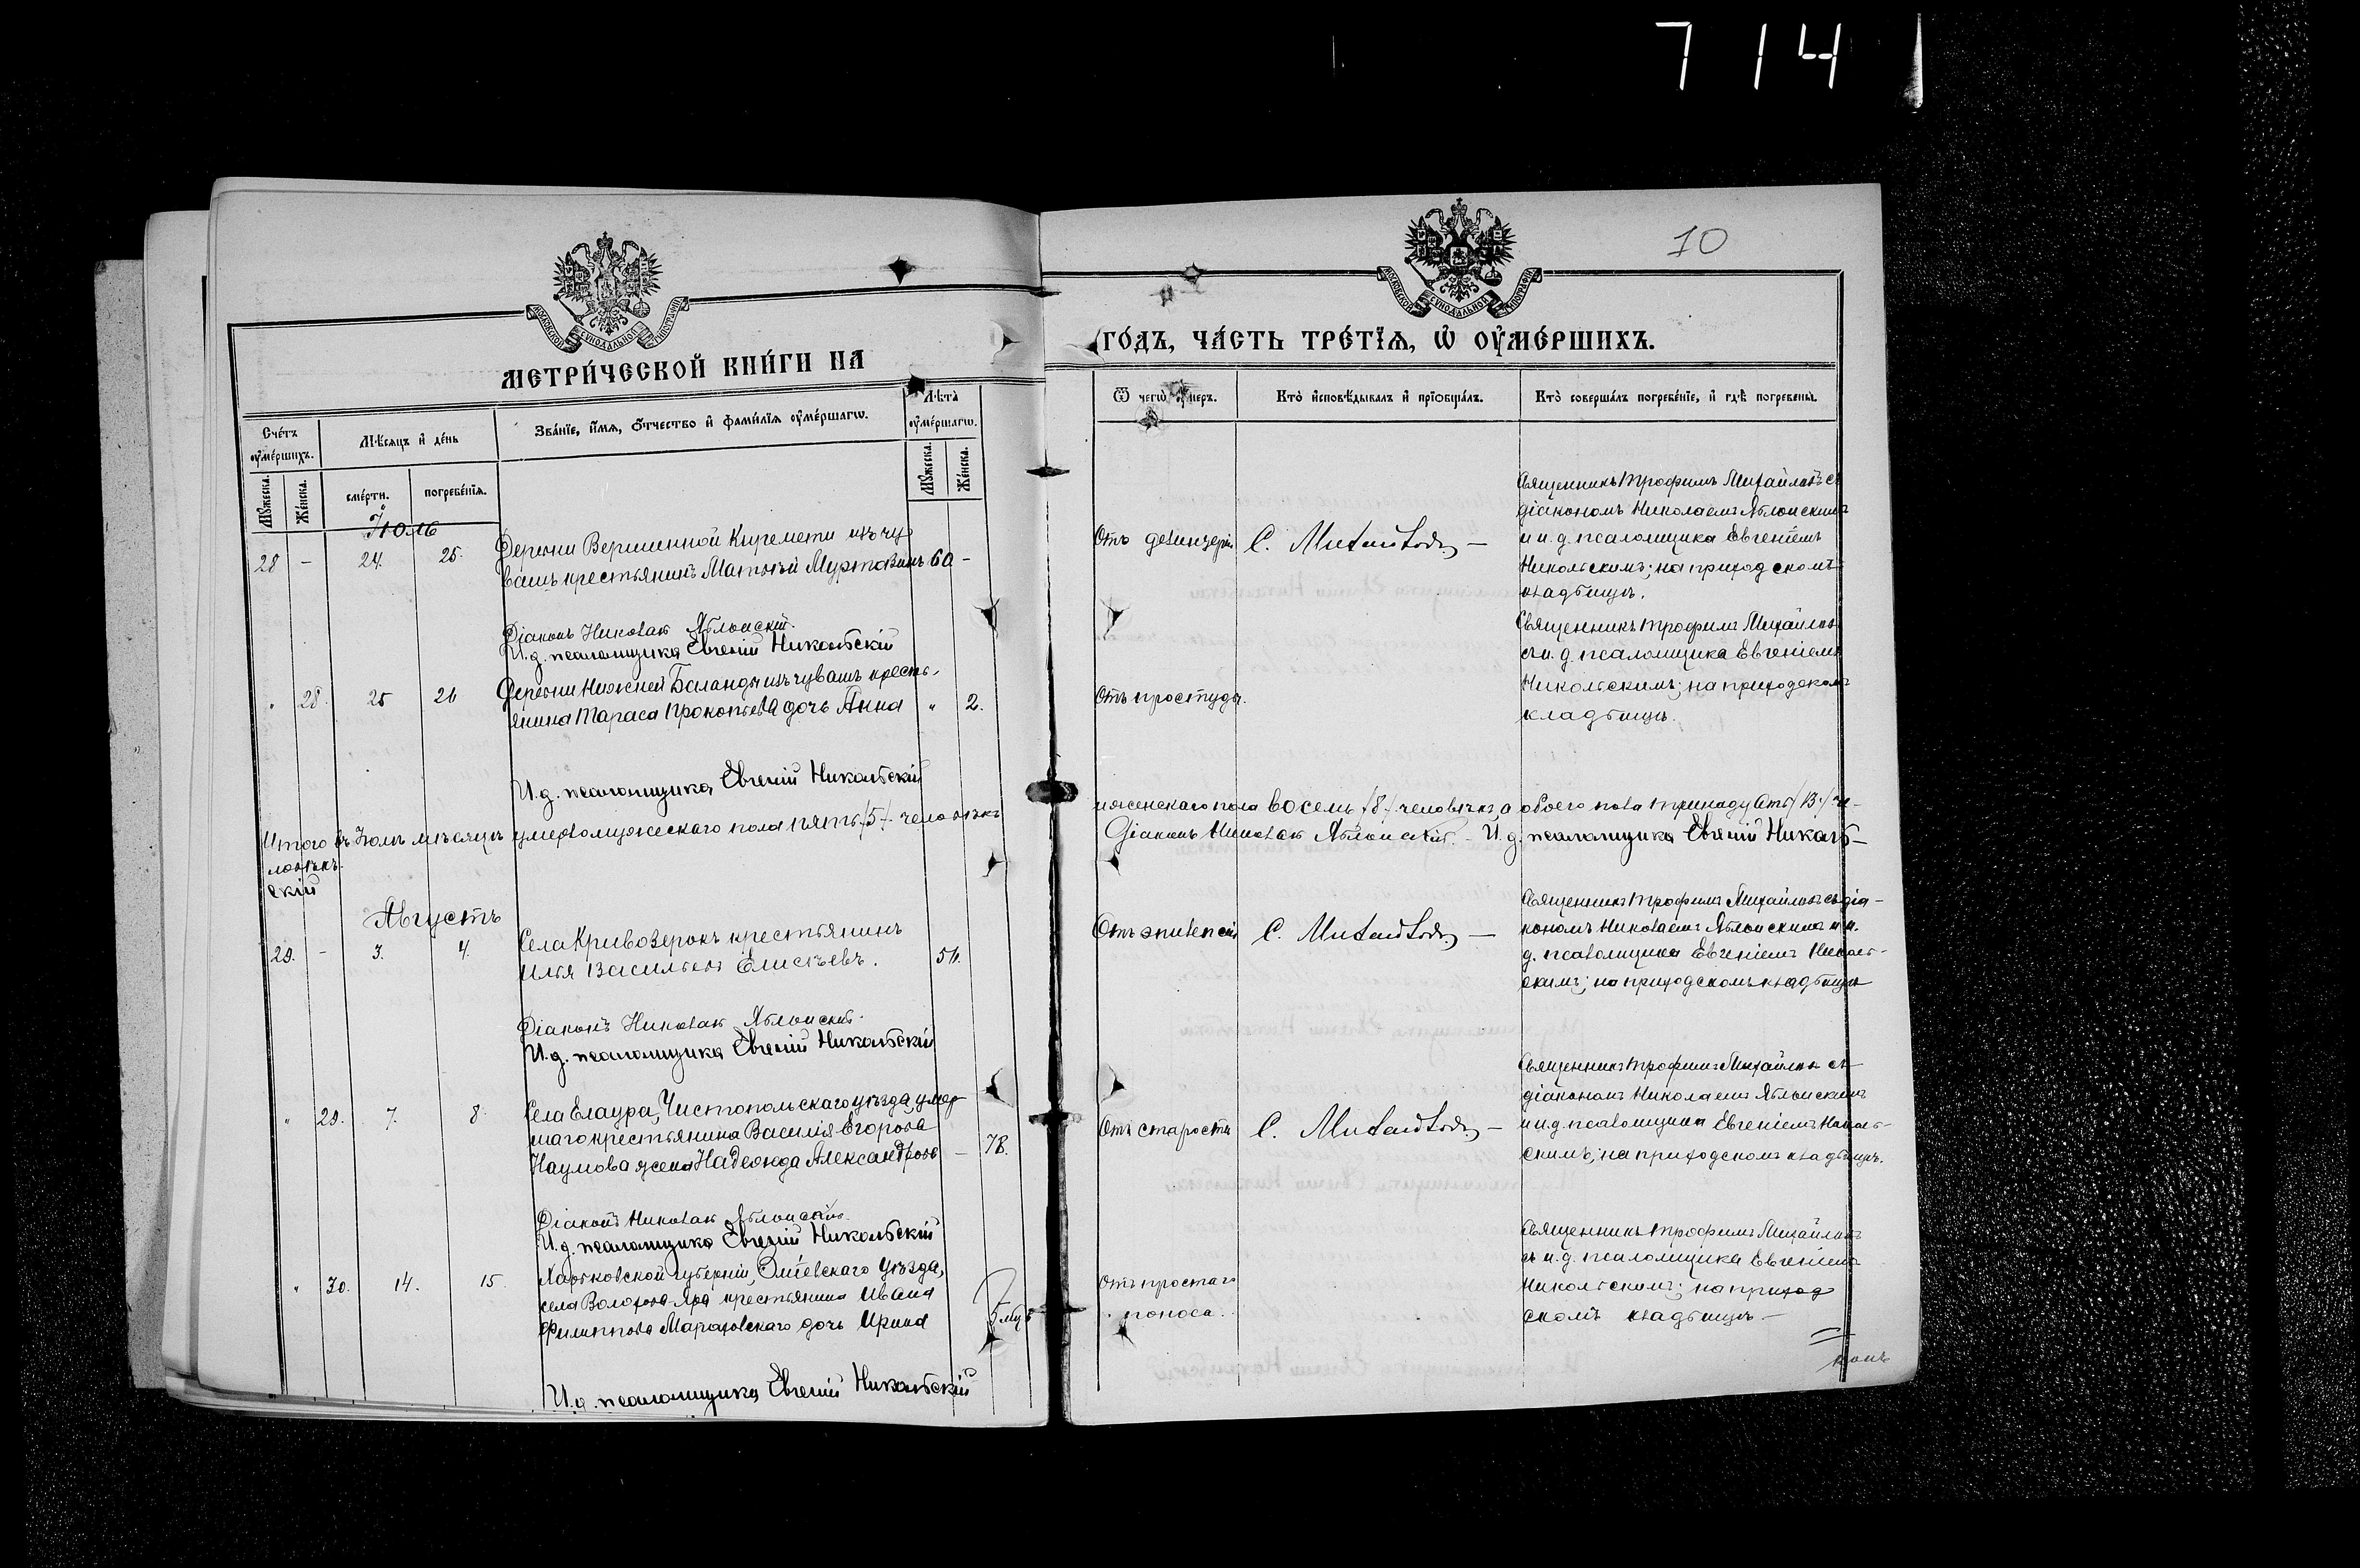 7 14
10
МОСКОВСКОЙ СѴНОДАЛЬНОЙ ТИПОГРАФІИ
МОСКОВСКОЙ СѴНОДАЛЬНОЙ ТИПОГРАФІИ
МЕТРИ́ЧЕСКОЙ КНИ́ГИ НА
ГО́ДЪ, ЧА́СТЬ ТРЕ́ТЇѦ, Ѡ҆ ОУ҆МЕ́РШИХЪ.
Сче́тъ оу҆ме́ршихъ.
Мѣ́сѧцъ и҆ де́нь
Зва́нїе, и҆́мѧ, ѻ҆́тчество и҆ фами́лїѧ оу҆ме́ршагѡ.
Лѣ́та оу҆ме́ршагѡ.
Ѿ чегѡ̀ оу҆́меръ.
Кто̀ и҆сповѣ́дывалъ и҆ прїѡбща́лъ.
Кто̀ соверша́лъ погребе́нїе, и҆ гдѣ̀ погребены̀.
Мꙋ́жеска.
Же́нска.
сме́рти.
погребе́нїѧ.
Мꙋ́жеска.
Же́нска.
Іюль
28 – 24. 25.
Деревни Вершинной Киремети изъ чу-
вашъ крестьянинъ Матвѣй Муртазинъ 60 –
Отъ дезинтеріи
С. Михайловъ –
Священникъ Трофимъ Михайловъ съ
діакономъ Николаемъ Яблонскимъ
и и. д. псаломщика Евгеніемъ
Никольскимъ; на приходскомъ
кладбищѣ.
Діаконъ Николай Яблонскій.
И. д. псаломщика Евгеній Никольскій
" 28. 25 26
Деревни Нижней Баланды изъ чувашъ кресть-
янина Тараса Прокопьева дочь Анна " 2.
Отъ простуды.
Священникъ Трофимъ Михайловъ
съ и. д. псаломщика Евгеніемъ
Никольскимъ; на приходскомъ
кладбищѣ.
И. д. псаломщика Евгеній Никольскій
Итого въ Іюлѣ мѣсяцѣ умерло мужескаго пола пять /5/ человѣкъ
и женскаго пола восемь /8/ человѣкъ, а обоего пола тринадцать /13/ че-
ловѣкъ.
Діаконъ Николай Яблонскій. – И. д. псаломщика Евгеній Николь-
скій
Августъ
29. – 3. 4.
Села Кривозерокъ крестьянинъ
Илья Васильевъ Елисѣевъ. 56.
Отъ эпилепсіи
С. Михайловъ –
Священникъ Трофимъ Михайловъ съ діа-
кономъ Николаемъ Яблонскимъ и и.
д. псаломщика Евгеніемъ Николь-
скимъ; на приходскомъ кладбищѣ
Діаконъ Николай Яблонскій.
И. д. псаломщика Евгеній Никольскій
" 29. 7. 8.
Села Елаура, Чистопольскаго уѣзда, умер-
шаго крестьянина Василія Егорова
Наумова жена Надежда Александрова – 78.
Отъ старости
С. Михайловъ –
Священникъ Трофимъ Михайловъ съ
діакономъ Николаемъ Яблонскимъ
и и. д. псаломщика Евгеніемъ Николь-
скимъ; на приходскомъ кладбищѣ.
Діаконъ Николай Яблонскій.
И. д. псаломщика Евгеній Никольскій
" 30. 14. 15.
Харьковской губерніи, Зміевскаго уѣзда,
села Волохова-Яра крестьянина Ивана
Филиппова дочь Ирина
Отъ простаго
поноса.
Священникъ Трофимъ Михайловъ
съ и. д. псаломщика Евгеніемъ
Никольскимъ; на приход
скомъ кладбищѣ –
И. д. псаломщика Евгеній Никольскій